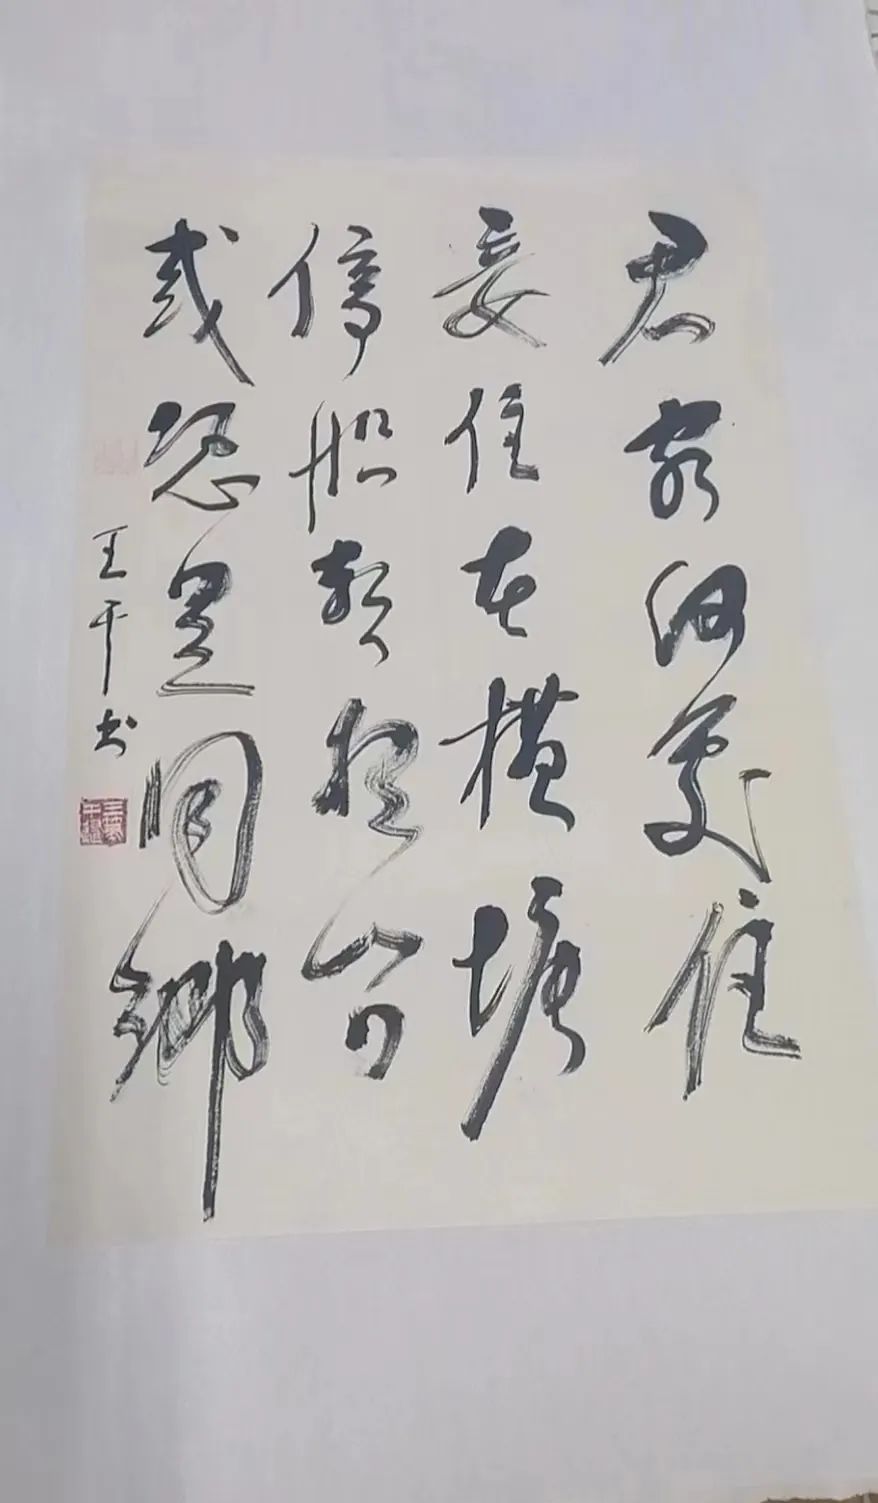 君家何處住
妾住在横塘
停船暫借问
或恐是同鄉
王干书